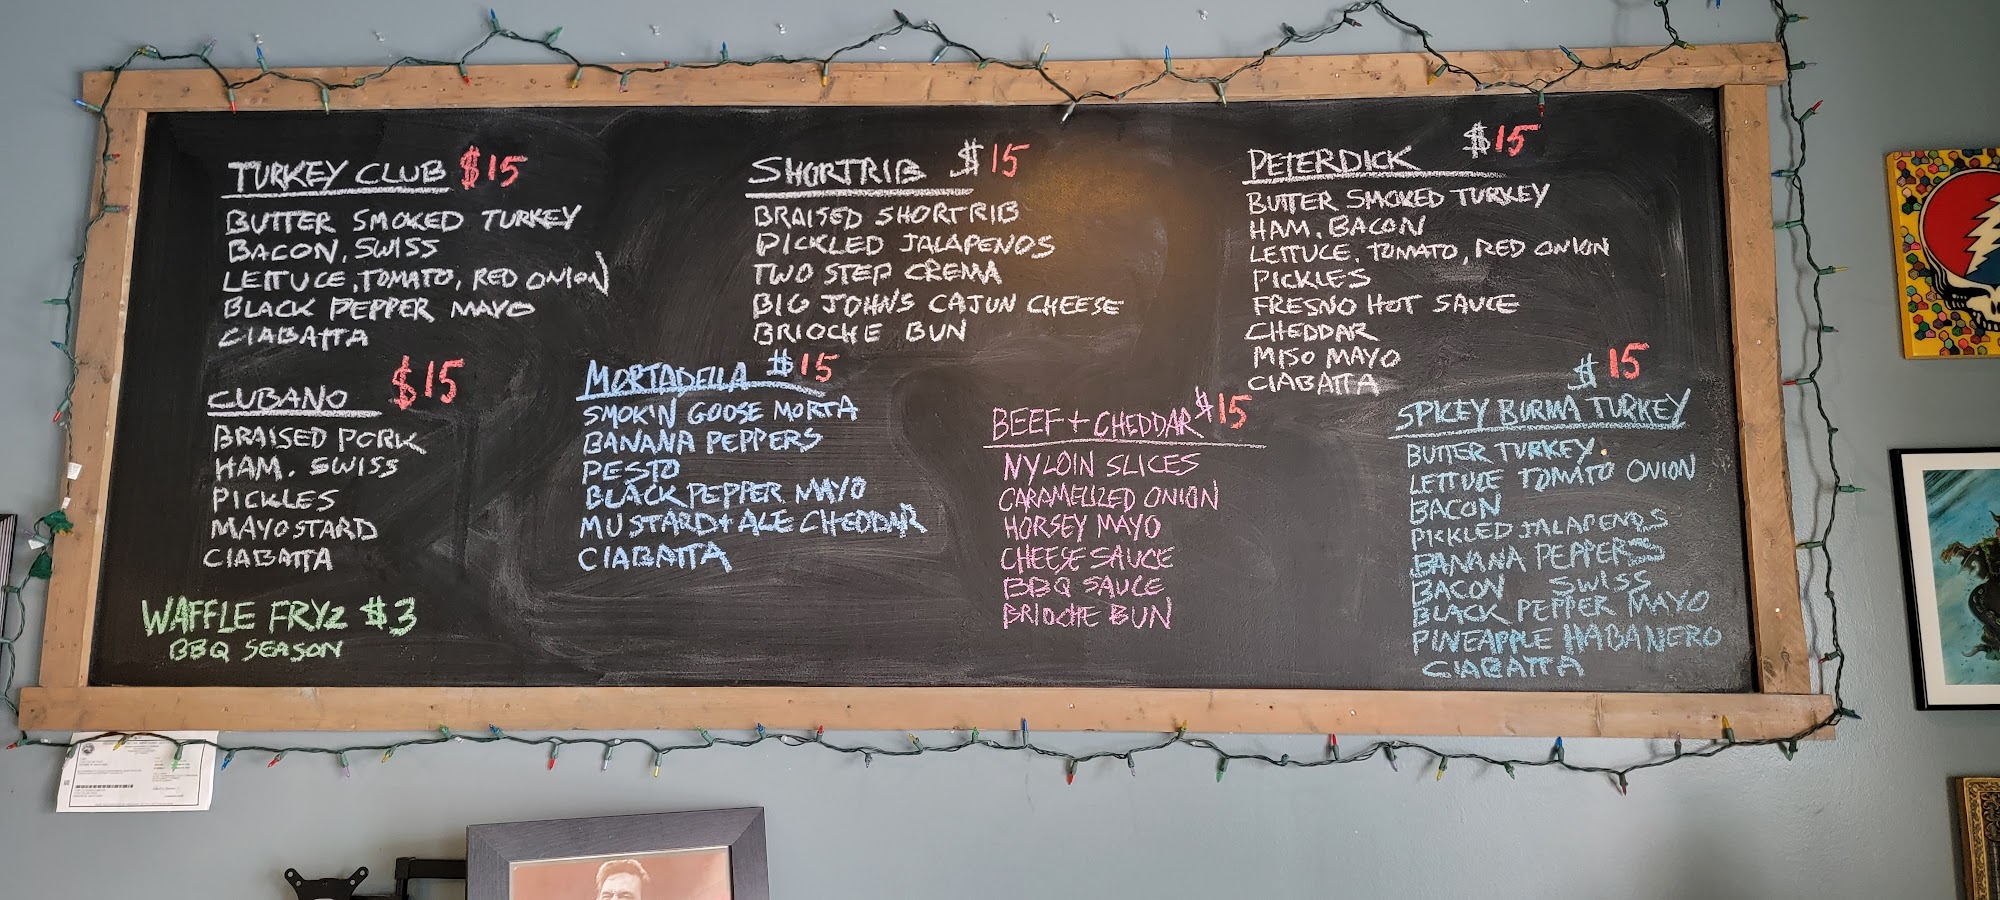 TURKEY CLUB $15
BUTTER SMOKED TURKEY
BACON, SWISS
LETTUCE, TOMATO, RED ONION
BLACK PEPPER MAYO
CIABATTA
SHORTRIB $15
BRAISED SHORTRIB
PICKLED JALAPENOS
TWO STEP CREMA
BIG JOHNS CAJUN CHEESE
BRIOCHE BUN
PETERDICK $15
BUTTER SMOKED TURKEY
HAM. BACON
LETTUCE. TOMATO, RED ONION
PICKLES
FRESNO HOT SAUCE
CHEDDAR
MISO MAYO
CIABATTA
CUBANO $15
BRAISED PORK
HAM. SWISS
PICKLES
MAYOSTARD
CIABATTA
MORTADELLA $15
SMOKIN GOOSE MORTA
BANANA PEPPERS
PESTO
BLACK PEPPER MAYO
MUSTARD + ALE CHEDDAR
CIABATTA
BEEF + CHEDDAR $15
NY LOIN SLICES
CARAMELIZED ONION
HORSEY MAYO
CHEESE SAUCE
BBQ SAUCE
BRIOCHE BUN
$15
SPICEY BURMA TURKEY
BUTTER TURKEY.
LETTUCE TOMATO ONION
BACON
PICKLED JALAPENOS
BANANA PEPPERS
BACON SWISS
BLACK PEPPER MAYO
PINEAPPLE HABANERO
CIABATTA
WAFFLE FRYZ $3
BBQ SEASON